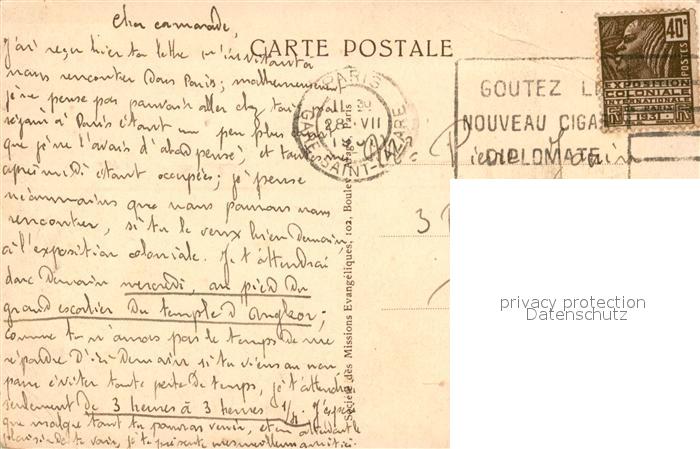 Cher camarade,
J'ai reçu hier ta lettre m'invitant à
nous rencontrer dans Paris; malheureusement
je ne pense pas pouvoir aller chez toi, mon
séjour à Paris étant un peu plus court
que je ne l'avais d'abord pensé, et toutes mes
après midi étant occupées; je pense
néanmoins que nous pourrons nous
rencontrer, si tu le veux bien demain,
à l'exposition coloniale. Je t'attendrai
donc demain mercredi, au pied du
grand escalier du temple d'Angkor;
comme tu n'aurais pas le temps de me
répondre d'ici demain si tu viens ou non,
pour éviter toute perte de temps, je t'attendrai
seulement de 3 heures à 3 heures 1/4. J'espère
que malgré tout tu pourras venir, et en attendant le
plaisir de te voir, je te présente mes meilleures amitiés.
CARTE POSTALE
PARIS
GARE SAINT-LAZARE
28 VII
GOUTEZ LE
NOUVEAU CIGA
DIPLOMATE
40c
POSTES
EXPOSITION
COLONIALE
INTERNATIONALE
PARIS
1931
Pierre
3
Société des Missions Evangéliques, 102, Boulev. Arago, Paris
privacy protection
Datenschutz